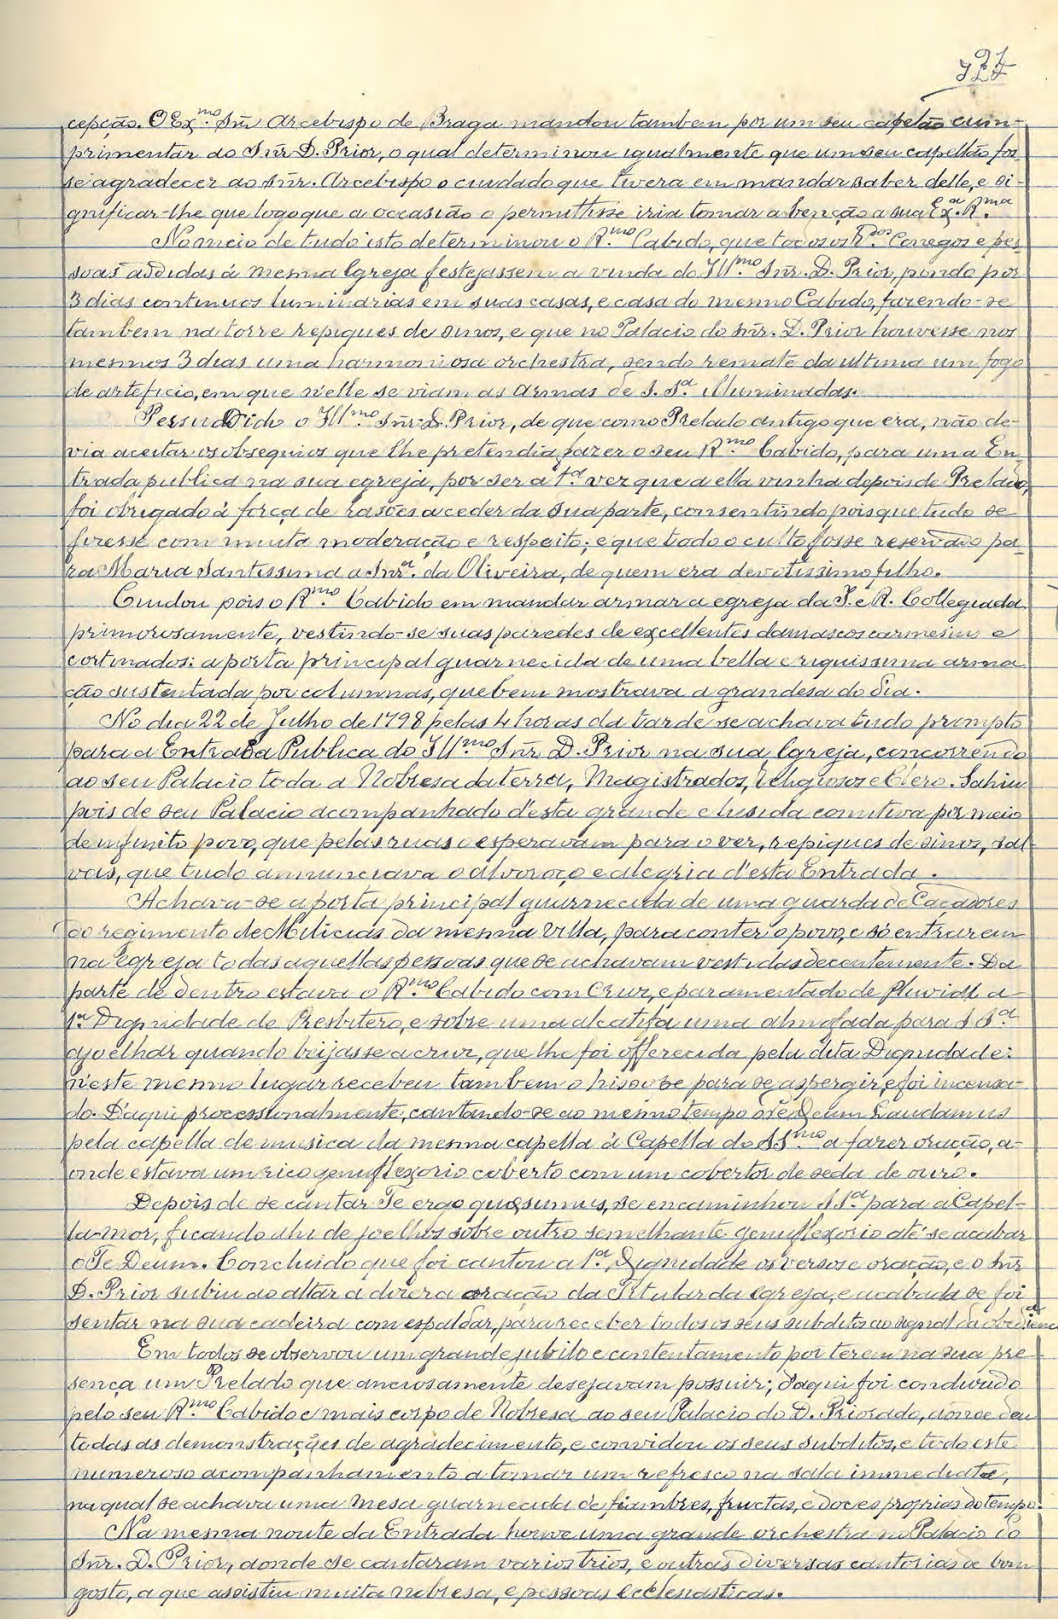 cepção. O Ex.mo Snr. Arcebispo de Braga mandou tambem por um seu capelão cum-
primentar ao Snr. D. Prior, o qual determinou igualmente que um seu capellão fos-
se agradecer ao Snr. Arcebispo o cuidado que tivera em mandar saber delle, e si-
gnificar-lhe que logo que a occasião o permittisse iria tomar a benção a sua Ex.a R.ma
No meio de tudo isto determinou o R.mo Cabido, que todos os R.dos Conegos e pes-
soas addidas á mesma Igreja festejassem a vinda do Ill.mo Snr. D. Prior, pondo por
3 dias continuos luminarias em suas casas, e casa do mesmo Cabido, fazendo-se
tambem na torre repiques de sinos, e que no Palacio do Snr. D. Prior houvesse nos
mesmos 3 dias uma harmoniosa orchestra, sendo remate da ultima um fogo
de arteficio, em que n'elle se viam as armas de S. S.a illuminadas.
Persuadido o Ill.mo Snr. D. Prior, de que como Prelado antigo que era, não de-
via aceitar os obsequios que lhe pretendia fazer o seu R.mo Cabido, para uma En-
trada publica na sua egreja, por ser a 1.a vez que a ella vinha depois de Prelado,
foi obrigado á força de rasões a ceder da sua parte, consentindo pois que tudo se
fizesse com muita moderação e respeito; e que todo o culto fosse reservado pa-
ra Maria Santissima a Snr.a da Oliveira, de quem era devotissimo filho.
Cuidou pois o R.mo Cabido em mandar armar a egreja da I. e R. Collegiada
primorosamente, vestindo-se suas paredes de excellentes damascos carmesins e
cortinados: a porta principal guarnecida de uma bella e riquissima arma-
ção sustentada por columnas, que bem mostrava a grandesa do dia.
No dia 22 de Julho de 1798 pelas 4 horas da tarde se achava tudo prompto
para a Entrada Publica do Ill.mo Snr. D. Prior na sua Igreja, concorrendo
ao seu Palacio toda a Nobresa da terra, Magistrados, Religiosos e Clero. Sahiu
pois de seu Palacio acompanhado d'esta grande e lusida comitiva por meio
de infinito povo, que pelas ruas o esperavam para o ver, repiques de sinos, sal-
vas, que tudo annunciava o alvoroço e alegria d'esta Entrada.
Achava-se a porta principal guarnecida de uma guarda de Caçadores
do regimento de Milicias da mesma Villa, para conter o povo, e só entrarem
na egreja todas aquellas pessoas que se achavam vestidas decentemente. Da
parte de dentro estava o R.mo Cabido com Cruz, e paramentado de pluvial a
1.a Dignidade do Presbitero, e sobre uma alcatifa uma almofada para S. S.a
ajoelhar quando beijasse a cruz, que lhe foi offerecida pela dita Dignidade:
n'este mesmo lugar recebeu tambem o hisope para se aspergir, e foi incensa-
do. D'aqui processionalmente, cantando-se ao mesmo tempo o Te Deum Laudamus
pela capella de musica da mesma capella á Capella do SS.mo a fazer oração, a-
onde estava um rico genuflexorio coberto com um cobertor de seda de ouro.
Depois de se cantar Te ergo quæsumus, se encaminhou S. S.a para a Capel-
la-mor, ficando ahi de joelhos sobre outro semelhante genuflexorio até se acabar
o Te Deum. Concluido que foi cantou a 1.a Dignidade os versos e oração, e o Snr.
D. Prior subiu ao altar a dizer a oração da Titular da Igreja, e acabada se foi
sentar na sua cadeira com espaldar, para receber todos os seus subditos ao signal da obediencia
Em todos se observou um grande jubilo e contentamento por terem na sua pre-
sença um Prelado que anciosamente desejavam possuir; d'aqui foi condusido
pelo seu R.mo Cabido e mais corpo de Nobresa ao seu Palacio do D. Priorado, aonde deu
todas as demonstrações de agradecimento, e convidou os seus subditos, e todo este
numeroso acompanhamento a tomar um refresco na sala immediata,
na qual se achava uma mesa guarnecida de fiambres, fructas, e doces proprios do tempo.
Na mesma noute da Entrada houve uma grande orchestra no Palacio do
Snr. D. Prior, aonde se cantaram varios trios, e outras diversas cantorias de bom
gosto, a que assistiu muita nobresa, e pessoas ecclesiasticas.